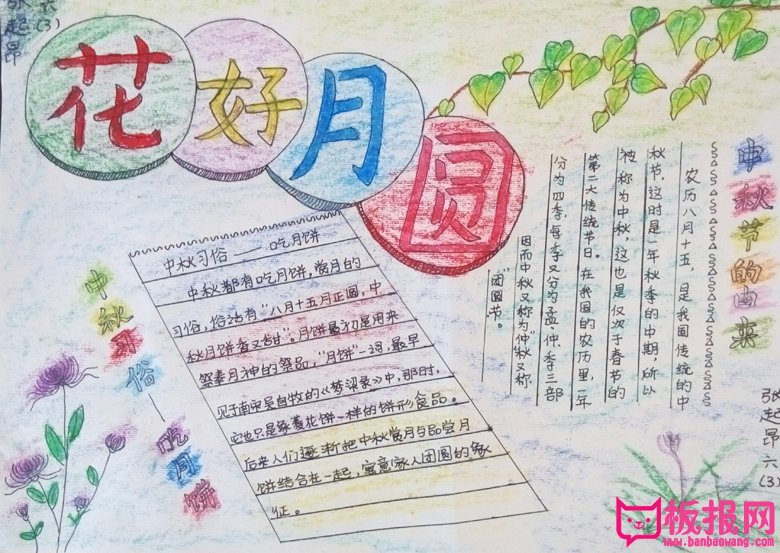 张起昂
六(3)
花好月圆
中秋节的由来
农历八月十五，是我国传统的中
秋节，这时是一年秋季的中期，所以
被称为中秋，这也是仅次于春节的
第二大传统节日。在我国的农历里，一年
分为四季，每季又分为孟、仲、季三部
因而中秋又称为"仲"秋又称
"团圆节"。
中秋习俗——吃月饼
中秋习俗——吃月饼
中秋都有吃月饼，赏月的
习俗，俗话有"八月十五月正圆，中
秋月饼香又甜"。月饼最初是用来
祭奉月神的祭品，"月饼"一词，最早
见于南宋吴自牧的《梦梁录》中，那时，
它也只是象菱花饼一样的饼形食品。
后来人们逐渐把中秋赏月与品尝月
饼结合在一起，寓意家人团圆的象
征。
张起昂六(3)
板报网
www.banbaowang.com